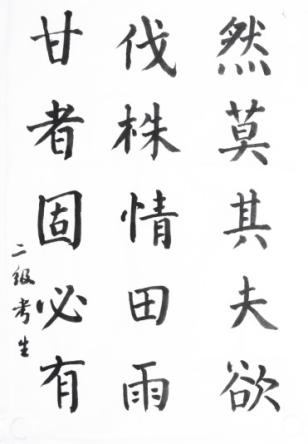 然莫其夫欲
伐株情田雨
甘者固必有
二级考生